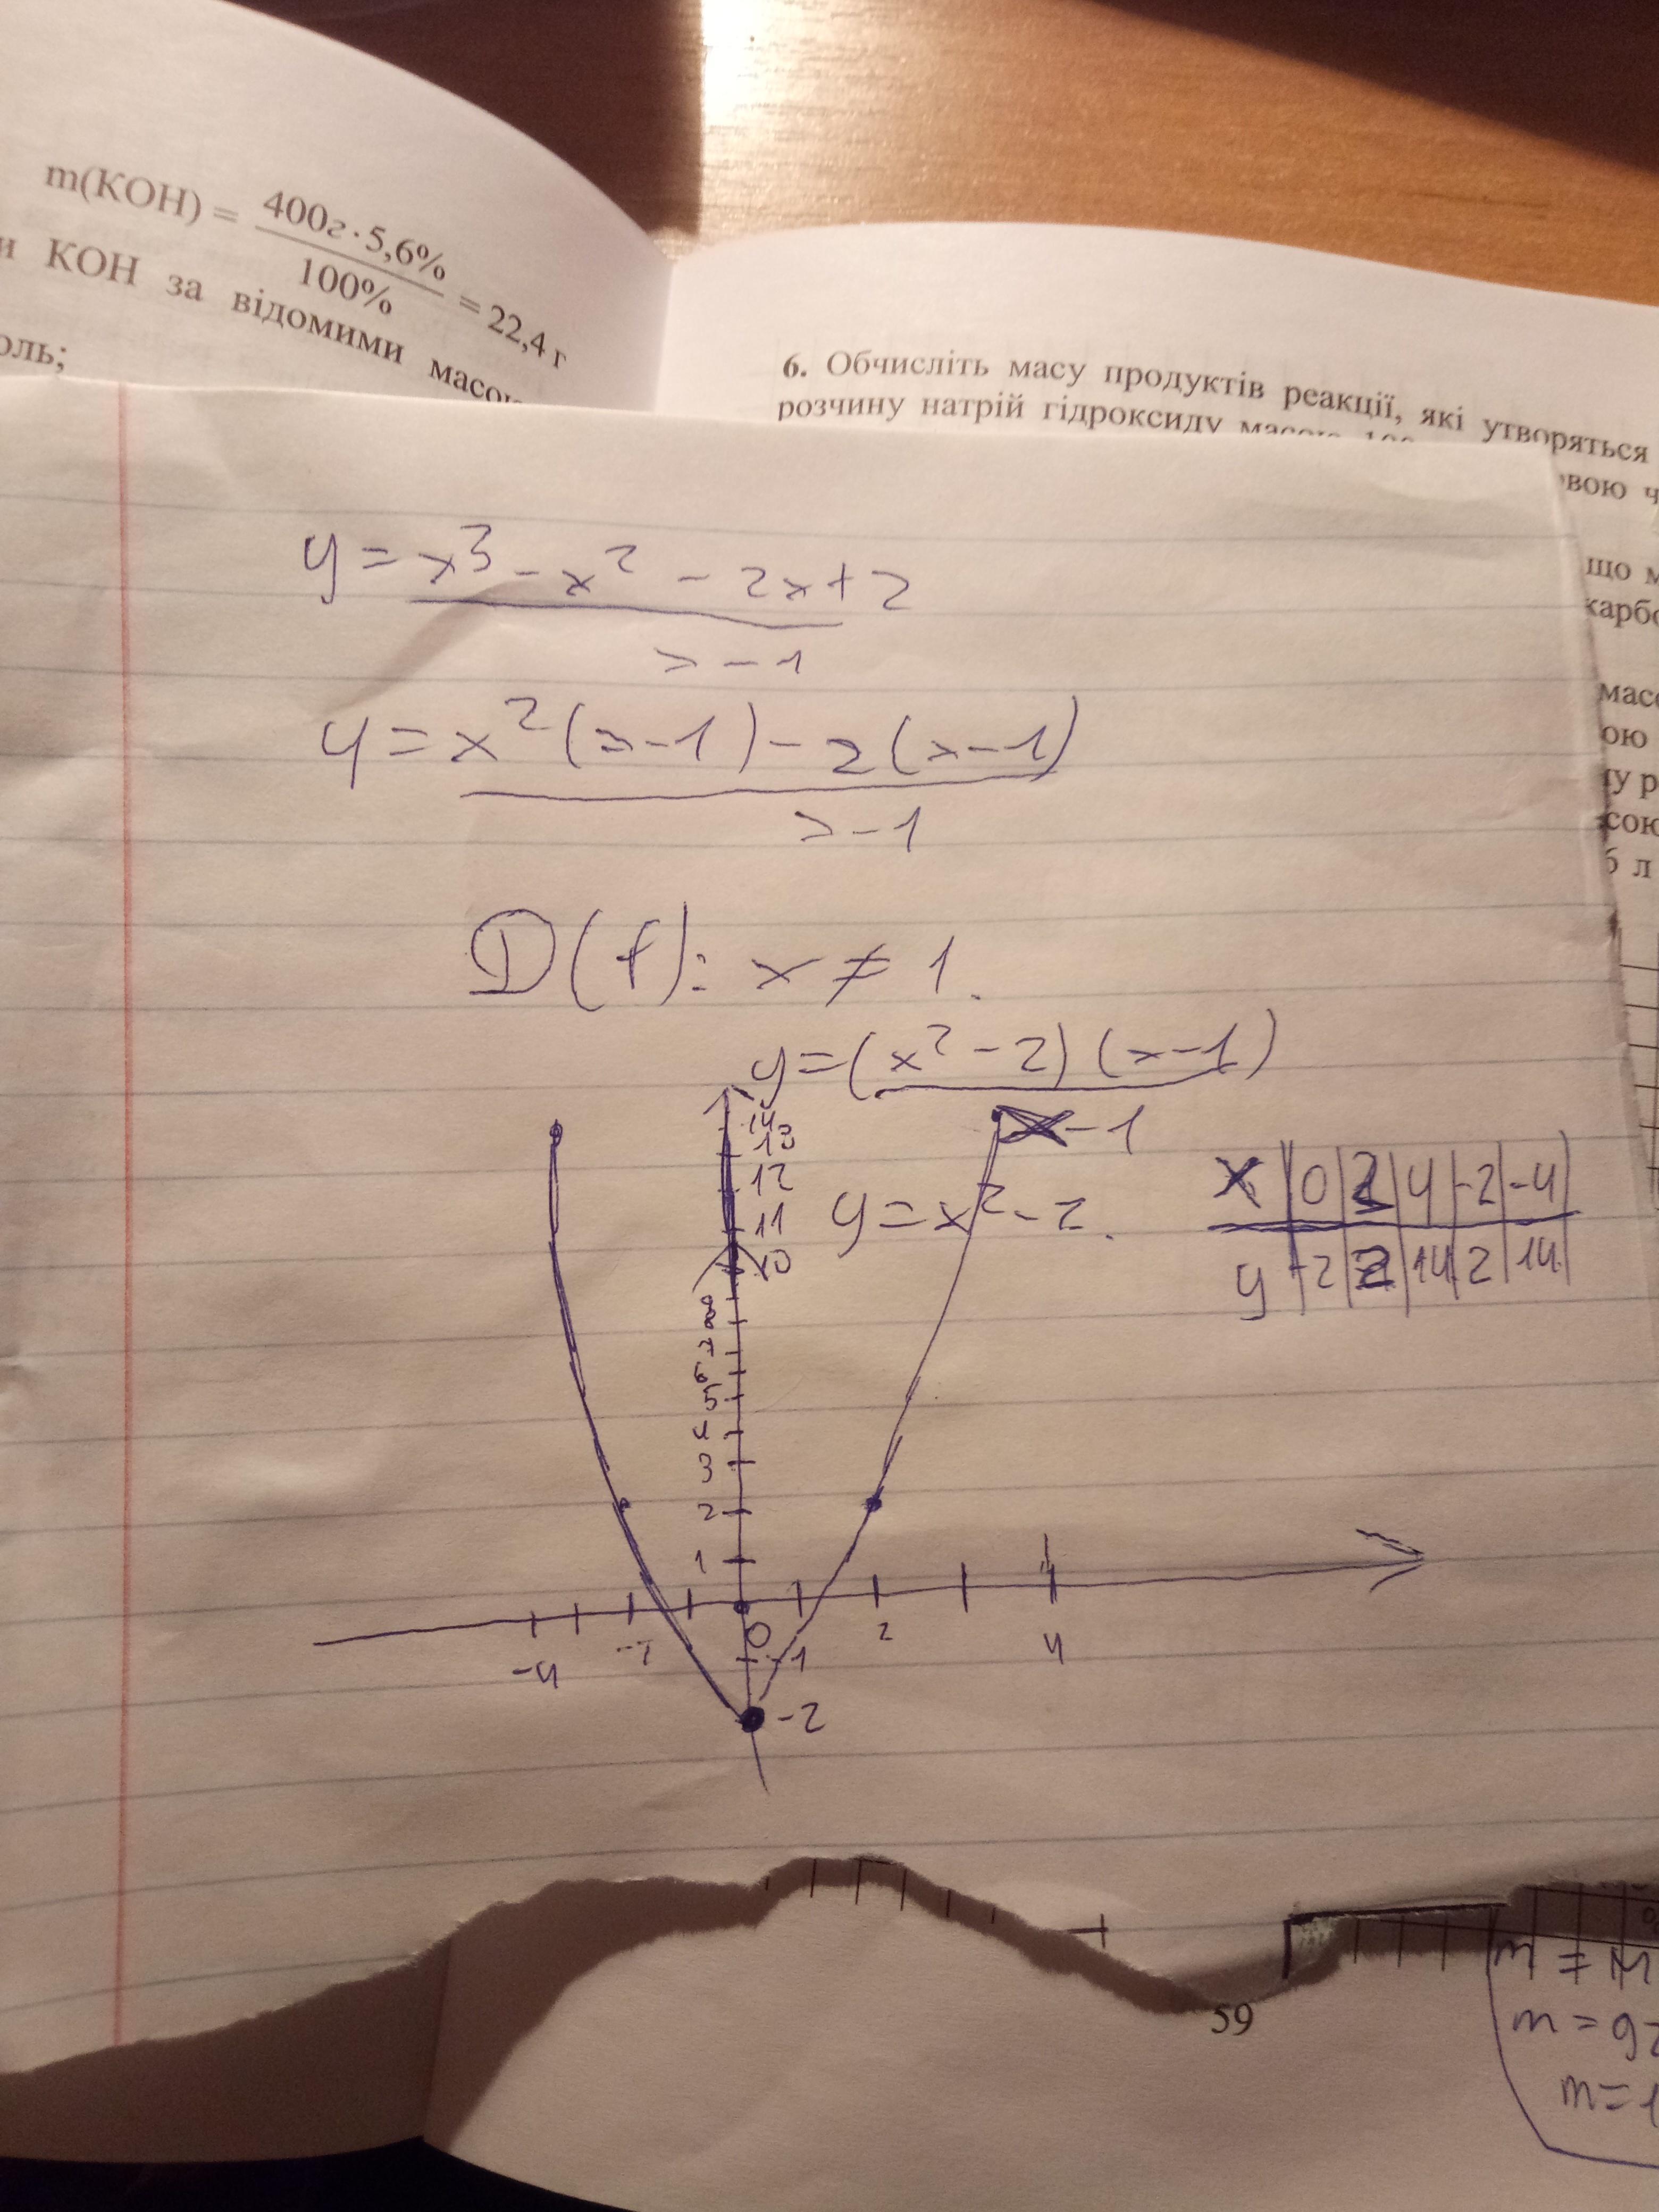 m(KOH) = 400г·5,6% / 100% = 22,4 г
и KOH за відомими
оль;
6. Обчисліть масу продуктів реакції, які утворяться
розчину натрій гідроксиду масою
вою ч
що м
карбо
масо
ою
ту р
сою
б л
y = x³ - x² - 2x + 2
x - 1
y = x²(x-1) - 2(x-1)
x - 1
D(f): x ≠ 1.
y = (x² - 2)(x-1)
x - 1
y = x² - 2.
x | 0 | 2 | 4 | -2 | -4 |
y | -2 | 2 | 14 | 2 | 14 |
14
13
12
11
10
9
8
7
6
5
4
3
2
1
-4 -2 0 2 4
-1
-2
59
m = M
m = 92
m = 1